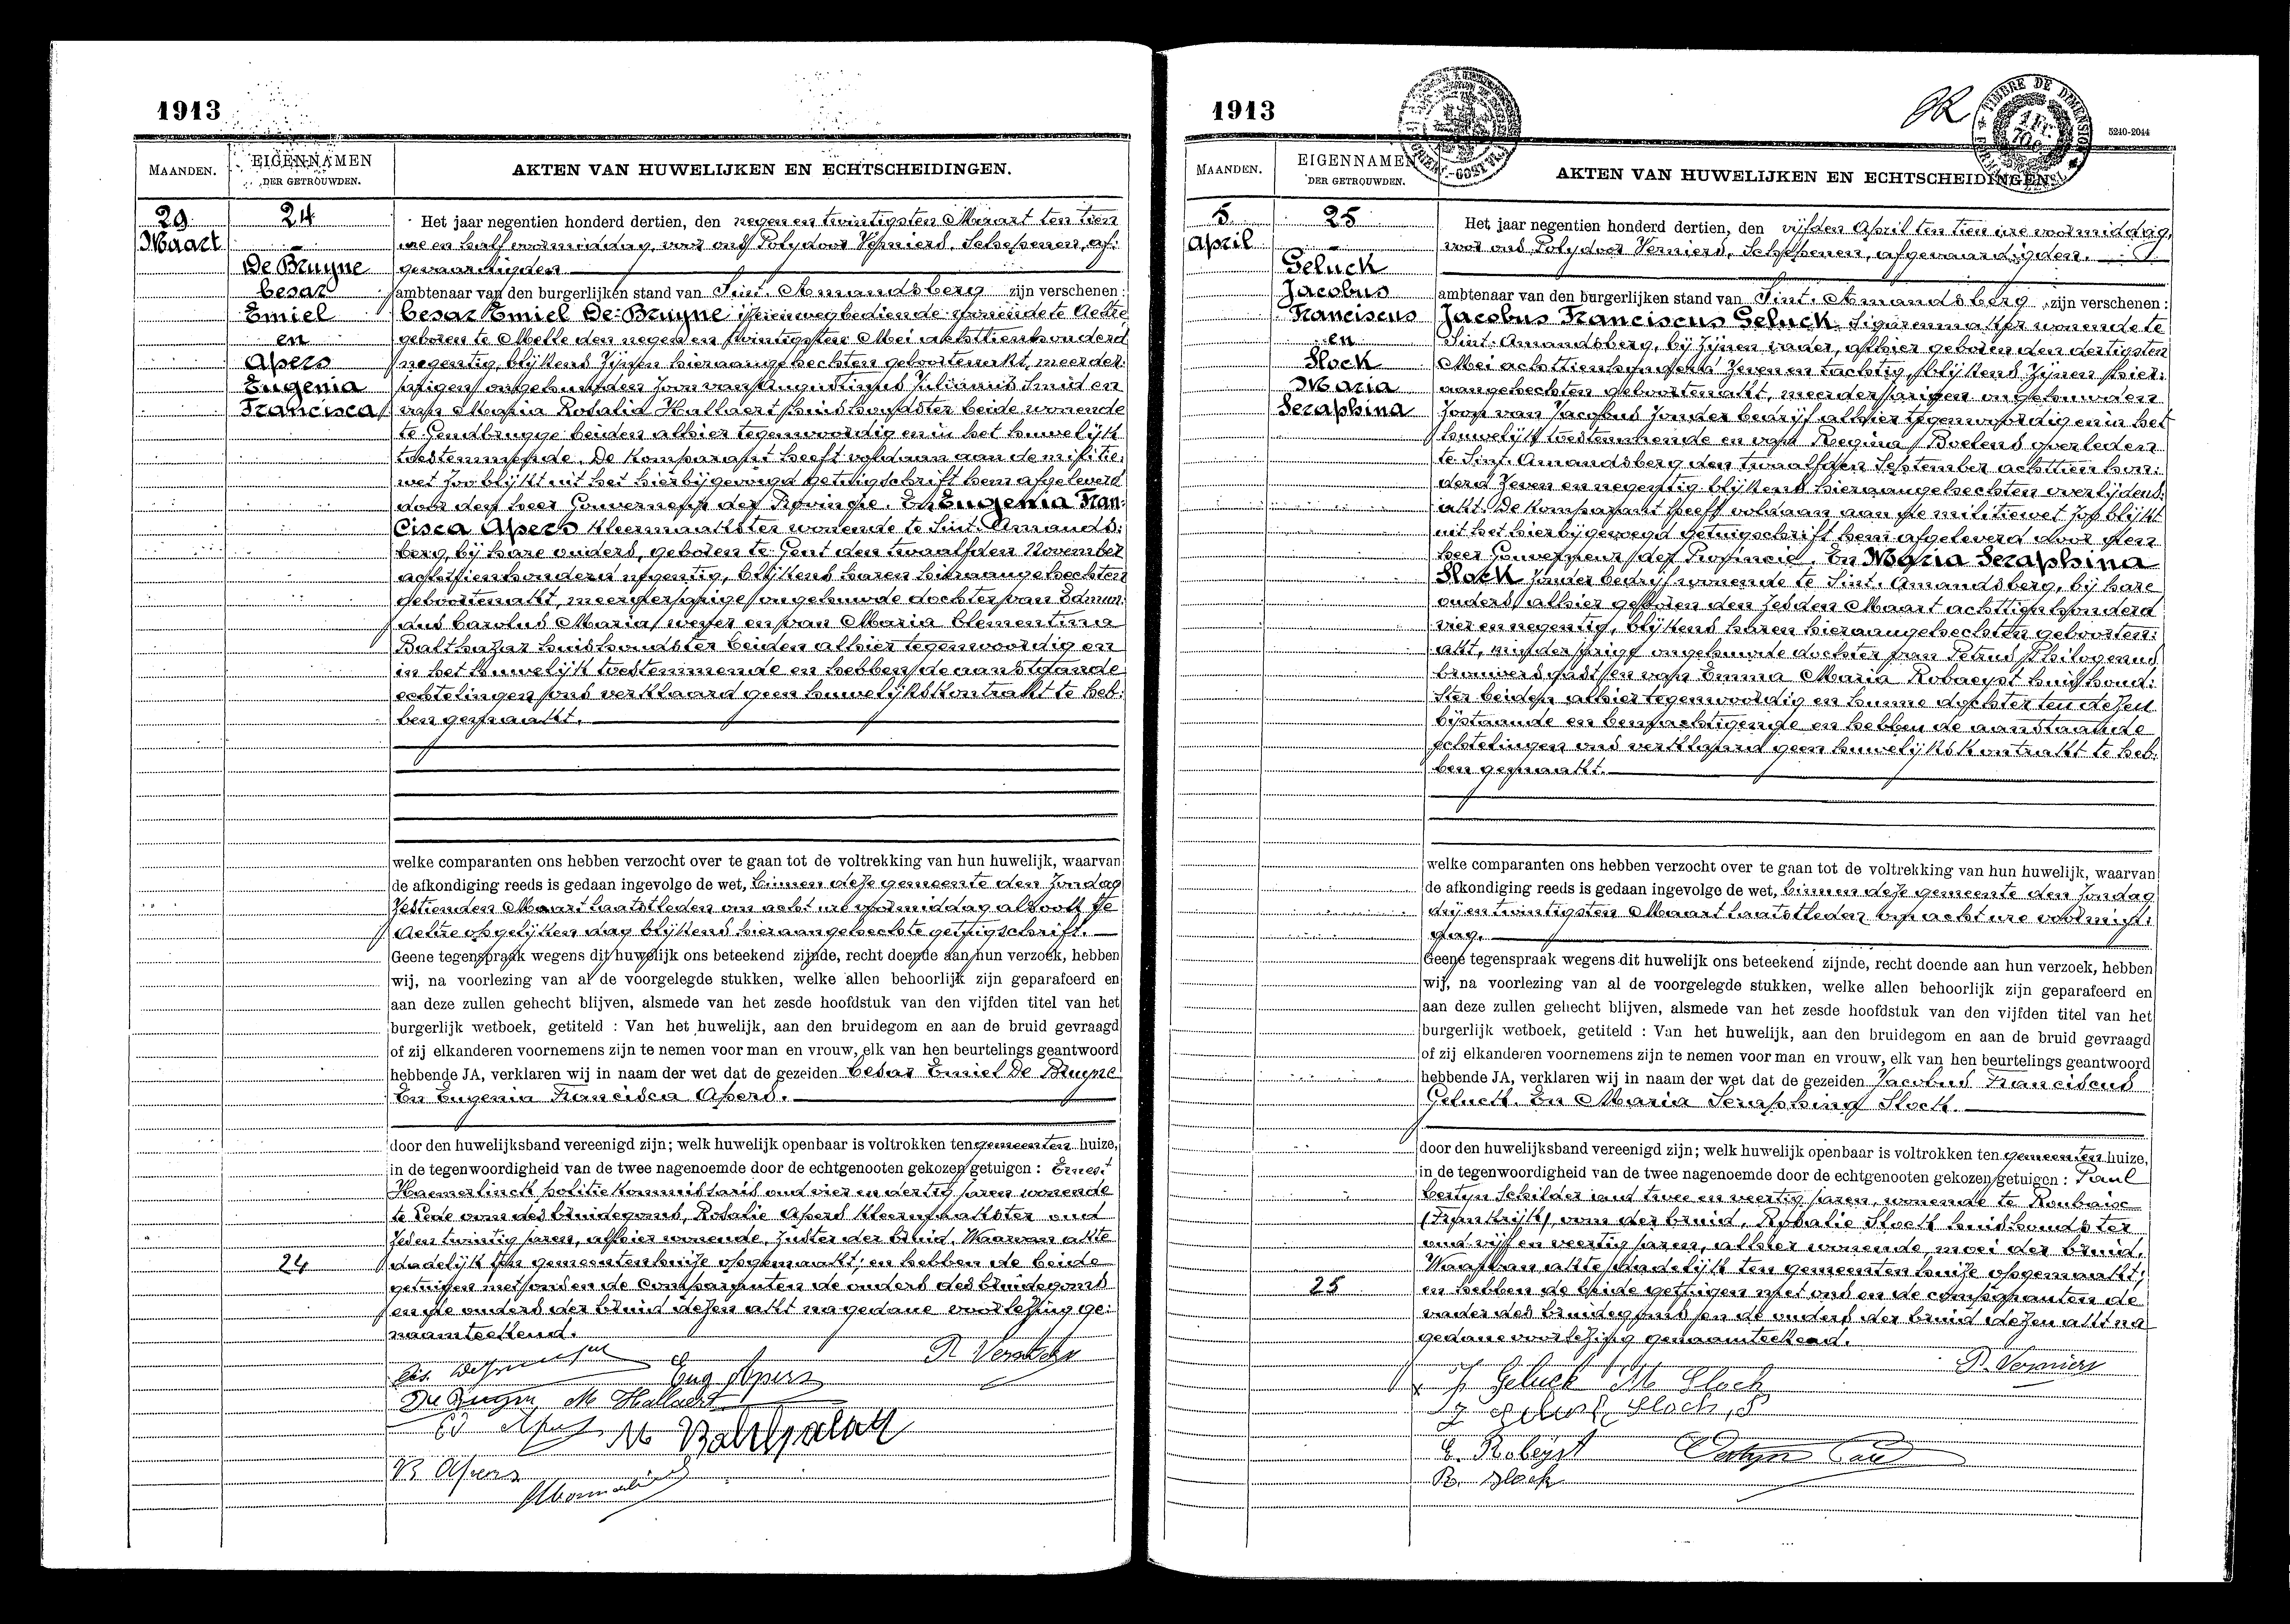 1913
MAANDEN.
EIGENNAMEN
DER GETROUWDEN.
AKTEN VAN HUWELIJKEN EN ECHTSCHEIDINGEN.
29
Maart
24
De Bruyne
Cesar
Emiel
en
Apers
Eugenia
Francisca
Het jaar negentien honderd dertien, den negen en twintigsten Maart ten tien
ure en half voormiddag, voor ons Polydoor Verniers, Schepenen, af:
gevaardigden
ambtenaar van den burgerlijken stand van Sint. Amandsberg zijn verschenen:
Cesar Emiel De Bruyne ijzerenwegbediende wonende te Aeltre
geboren te Melle den negen en twintigsten Mei achttienhonderd
negentig, blijkens zijnen hieraangehechten geboorteakt, meerder:
jarigen ongehuwden zoon van Augustinus Julianus smid en
van Maria Rosalia Hallaert huishoudster beide wonende
te Gendbrugge beiden alhier tegenwoordig en in het huwelijk
toestemmende. De komparant heeft voldaan aan de militie:
wet zoo blijkt uit het hierbijgevoegd getuigschrift hem afgeleverd
door den heer Gouverneur der Provincie. En Eugenia Fran:
cisca Apers kleermaakster wonende te Sint. Amands:
berg, bij hare ouders, geboren te Gent den twaalfden November
achttienhonderd negentig, blijkens haren hieraangehechten
geboortenakt, meerderjarige ongehuwde dochter van Edmun:
dus Carolus Maria wever en van Maria Clementina
Balthazar huishoudster beiden alhier tegenwoordig en
in het huwelijk toestemmende en hebben de aanstaande
echtelingen ons verklaard geen huwelijkskontrakt te heb:
ben gemaakt.
welke comparanten ons hebben verzocht over te gaan tot de voltrekking van hun huwelijk, waarvan
de afkondiging reeds is gedaan ingevolge de wet, binnen deze gemeente den Zondag
zestienden Maart laatstleden om acht ure voormiddag alsook te
Aeltre op gelijken dag blijkens hieraangehechte getuigschrift.
Geene tegenspraak wegens dit huwelijk ons beteekend zijnde, recht doende aan hun verzoek, hebben
wij, na voorlezing van al de voorgelegde stukken, welke allen behoorlijk zijn geparafeerd en
aan deze zullen gehecht blijven, alsmede van het zesde hoofdstuk van den vijfden titel van het
burgerlijk wetboek, getiteld : Van het huwelijk, aan den bruidegom en aan de bruid gevraagd
of zij elkanderen voornemens zijn te nemen voor man en vrouw, elk van hen beurtelings geantwoord
hebbende JA, verklaren wij in naam der wet dat de gezeiden Cesar Emiel De Bruyne
En Eugenia Francisca Apers.
door den huwelijksband vereenigd zijn; welk huwelijk openbaar is voltrokken ten gemeenten huize,
in de tegenwoordigheid van de twee nagenoemde door de echtgenooten gekozen getuigen : Ernest
Haemerlinck politiekommissaris oud vier en dertig jaren wonende
te Lede oom des bruidegoms, Rosalie Apers kleermaakster oud
jaren, alhier wonende, zuster der bruid. Waarvan akte
24
dadelijk ten gemeentenhuize opgemaakt; en hebben de beide
getuigen met ons en de comparanten de ouders des bruidegoms
en de ouders der bruid dezen akt na gedane voorlezing ge:
naamteekend.
P. Verniers
Eug Apers
De Bruyne M Hallaert
Ed Apers M Balthazar
R Apers
1913
5240-2044
TIMBRE DE DIMENSION
MAANDEN.
EIGENNAMEN
DER GETROUWDEN.
AKTEN VAN HUWELIJKEN EN ECHTSCHEIDINGEN.
5
April
25
Geluck
Jacobus
Franciscus
en
Slock
Maria
Seraphina
Het jaar negentien honderd dertien, den vijfden April ten tien ure voormiddag,
voor ons Polydoor Verniers, Schepenen, afgevaardigden.
ambtenaar van den burgerlijken stand van Sint. Amandsberg zijn verschenen:
Jacobus Franciscus Geluck Sigarenmaker wonende te
Sint. Amandsberg, bij zijnen vader, alhier geboren den dertigsten
Mei achttienhonderd zeven en tachtig, blijkens zijnen hier:
aangehechten geboortenakt, meerderjarigen ongehuwden
zoon van Jacobus zonder bedrijf alhier tegenwoordig en in het
huwelijk toestemmende en van Regina Boelens overleden
te Sint. Amandsberg den twaalfden September achttien hon:
derd zeven en negentig blijkens hieraangehechten overlijdens:
akt. De komparant heeft voldaan aan de militiewet zoo blijkt
uit het hierbijgevoegd getuigschrift hem afgeleverd door den
heer Gouverneur der Provincie. En Maria Seraphina
Slock zonder bedrijf wonende te Sint. Amandsberg, bij hare
ouders alhier geboren den zesden Maart achttienhonderd
vier en negentig, blijkens haren hieraangehechten geboorten:
akt, minderjarige ongehuwde dochter van Petrus Philogenus
brouwersgast en van Emma Maria Robaeyst huishoud:
ster beiden alhier tegenwoordig en hunne dochter ten dezen
bijstaande en bemachtigende en hebben de aanstaande
echtelingen ons verklaard geen huwelijkskontrakt te heb:
ben gemaakt.
welke comparanten ons hebben verzocht over te gaan tot de voltrekking van hun huwelijk, waarvan
de afkondiging reeds is gedaan ingevolge de wet, binnen deze gemeente den Zondag
drij en twintigsten Maart laatstleden om acht ure voormid:
dag.
Geene tegenspraak wegens dit huwelijk ons beteekend zijnde, recht doende aan hun verzoek, hebben
wij, na voorlezing van al de voorgelegde stukken, welke allen behoorlijk zijn geparafeerd en
aan deze zullen gehecht blijven, alsmede van het zesde hoofdstuk van den vijfden titel van het
burgerlijk wetboek, getiteld : Van het huwelijk, aan den bruidegom en aan de bruid gevraagd
of zij elkanderen voornemens zijn te nemen voor man en vrouw, elk van hen beurtelings geantwoord
hebbende JA, verklaren wij in naam der wet dat de gezeiden Jacobus Franciscus
Geluck. En Maria Seraphina Slock.
door den huwelijksband vereenigd zijn; welk huwelijk openbaar is voltrokken ten gemeenten huize,
in de tegenwoordigheid van de twee nagenoemde door de echtgenooten gekozen getuigen : Paul
Certyn Schilder oud twee en veertig jaren, wonende te Roubaix
(Frankrijk), oom der bruid, Rosalie Slock huishoudster
oud vijf en veertig jaren, alhier wonende, moei der bruid.
Waarvan akte dadelijk ten gemeenten huize opgemaakt;
25
en hebben de beide getuigen met ons en de comparanten de
vader des bruidegoms en de ouders der bruid dezen akt na
gedane voorlezing genaamteekend.
P. Verniers
J. Geluck M. Slock
J Geluck Slock, P
E. Robeyst
R. Slock